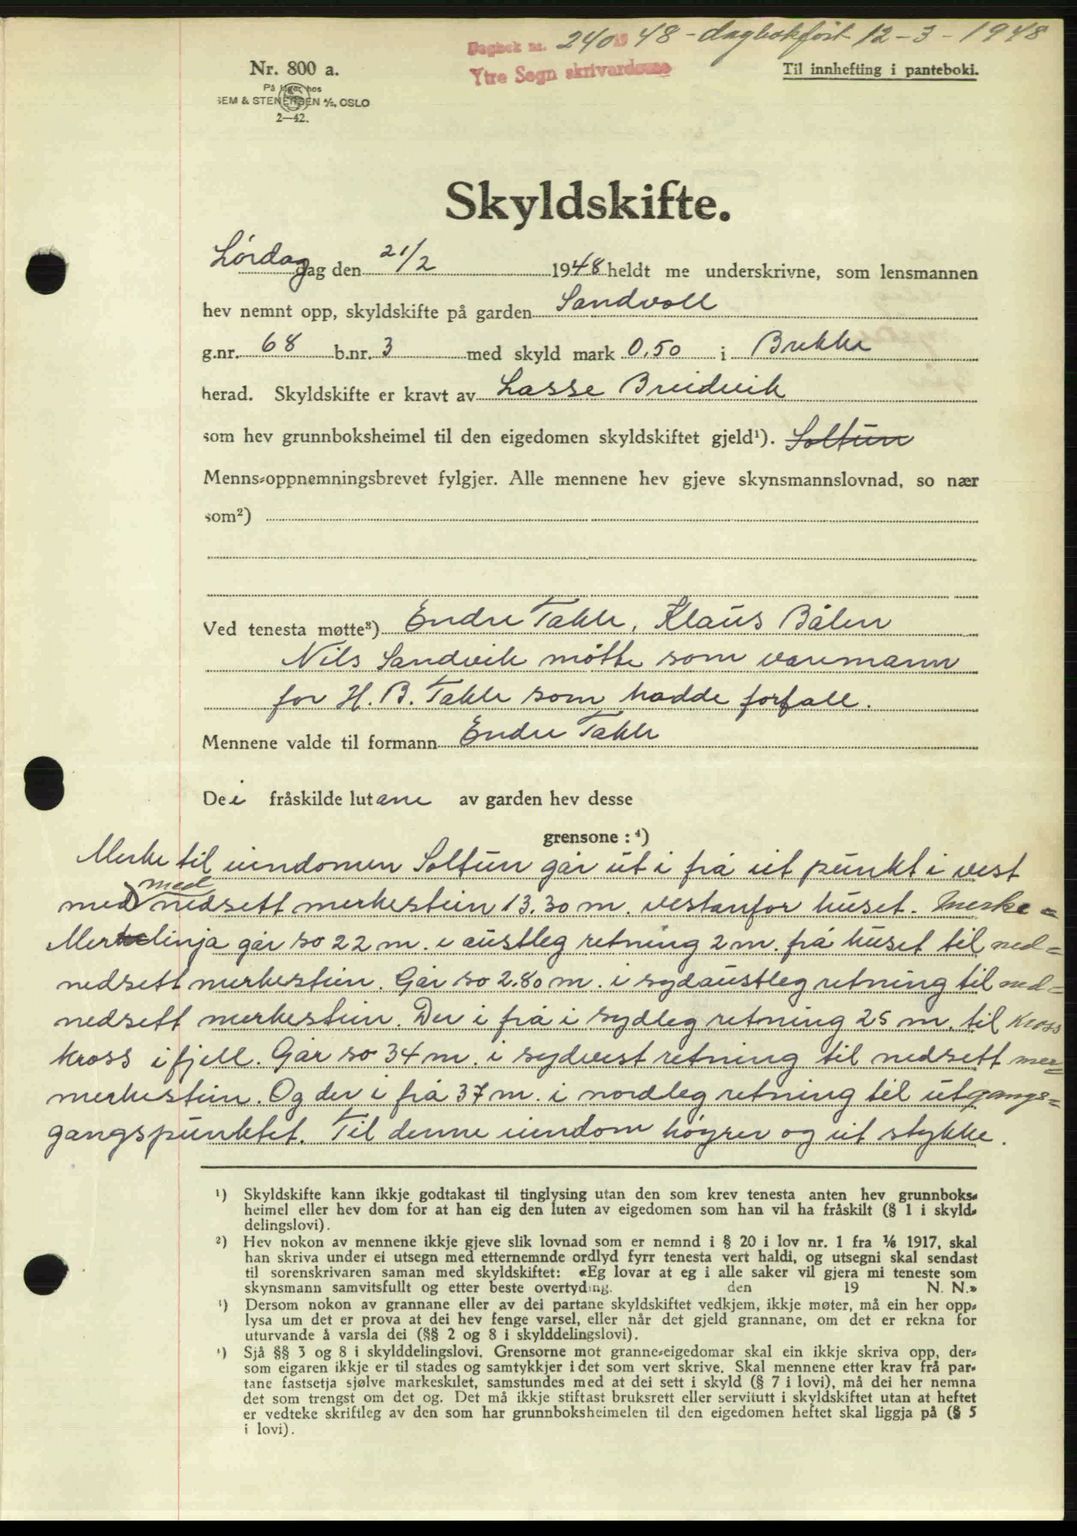 Dagbok nr. 240 1948 - dagbokført 12-3-1948
Ytre Sogn skrivardøme
Nr. 800 a.
På lager hos
SEM & STENERSEN A/S, OSLO
2—42.
Til innhefting i panteboki.
Skyldskifte.
Lørdag dag den 21/2 1948 heldt me underskrivne, som lensmannen
hev nemnt opp, skyldskifte på garden Sandvoll
g.nr. 68 b.nr. 3 med skyld mark 0,50 i Brekke
herad. Skyldskifte er kravt av Lasse Breidvik
som hev grunnboksheimel til den eigedomen skyldskiftet gjeld¹). Soltun
Menns-oppnemningsbrevet fylgjer. Alle mennene hev gjeve skynsmannslovnad, so nær
som²)
Ved tenesta møtte³) Endre Takle, Klaus Bålen
Nils Sandvik møtte som varemann
for H. B. Takle som hadde forfall.
Mennene valde til formann Endre Takle
Dei fråskilde lutane av garden hev desse
grensone : ⁴)
Merke til eiendomen Soltun går ut i frå eit punkt i vest
med med nedsett merkestein 13.30 m. vestanfor huset. Merke-
Merkelinja går so 22 m. i austleg retning 2 m. frå huset til ned-
nedsett merkestein. Går so 2.80 m. i sydaustleg retning til ned-
nedsett merkestein. Der i frå i sydleg retning 25 m. til kross
kross i fjell. Går so 34 m. i sydvest retning til nedsett mer-
merkestein. Og der i frå 37 m. i nordleg retning til utgangs-
gangspunktet. Til denne eiendom høyrer og eit stykke.
¹) Skyldskifte kann ikkje godtakast til tinglysing utan den som krev tenesta anten hev grunnboks-
heimel eller hev dom for at han eig den luten av eigedomen som han vil ha fråskilt (§ 1 i skyld-
delingslovi).
²) Hev nokon av mennene ikkje gjeve slik lovnad som er nemnd i § 20 i lov nr. 1 fra 1/6 1917, skal
han skriva under ei utsegn med etternemnde ordlyd fyrr tenesta vert haldi, og utsegni skal sendast
til sorenskrivaren saman med skyldskiftet: «Eg lovar at eg i alle saker vil gjera mi teneste som
skynsmann samvitsfullt og etter beste overtyding. den 19 N. N.»
³) Dersom nokon av grannane eller av dei partane skyldskiftet vedkjem, ikkje møter, må ein her opp-
lysa um det er prova at dei hev fenge varsel, eller når det gjeld grannane, om det er rekna for
uturvande å varsla dei (§§ 2 og 8 i skylddelingslovi).
⁴) Sjå §§ 3 og 8 i skylddelingslovi. Grensorne mot granne-eigedomar skal ein ikkje skriva opp, der-
som eigaren ikkje er til stades og samtykkjer i det som vert skrive. Skal mennene etter krav frå par-
tane fastsetja sjølve markeskilet, samstundes med at dei sett i skyld (§ 7 i lovi), må dei her nemna
det som trengst om det og. Det må ikkje stiftast bruksrett eller servitutt i skyldskiftet utan at heftet
er vedteke skriftleg av den som har grunnboksheimelen til den eigedomen heftet skal liggja på (§ 5
i lovi).